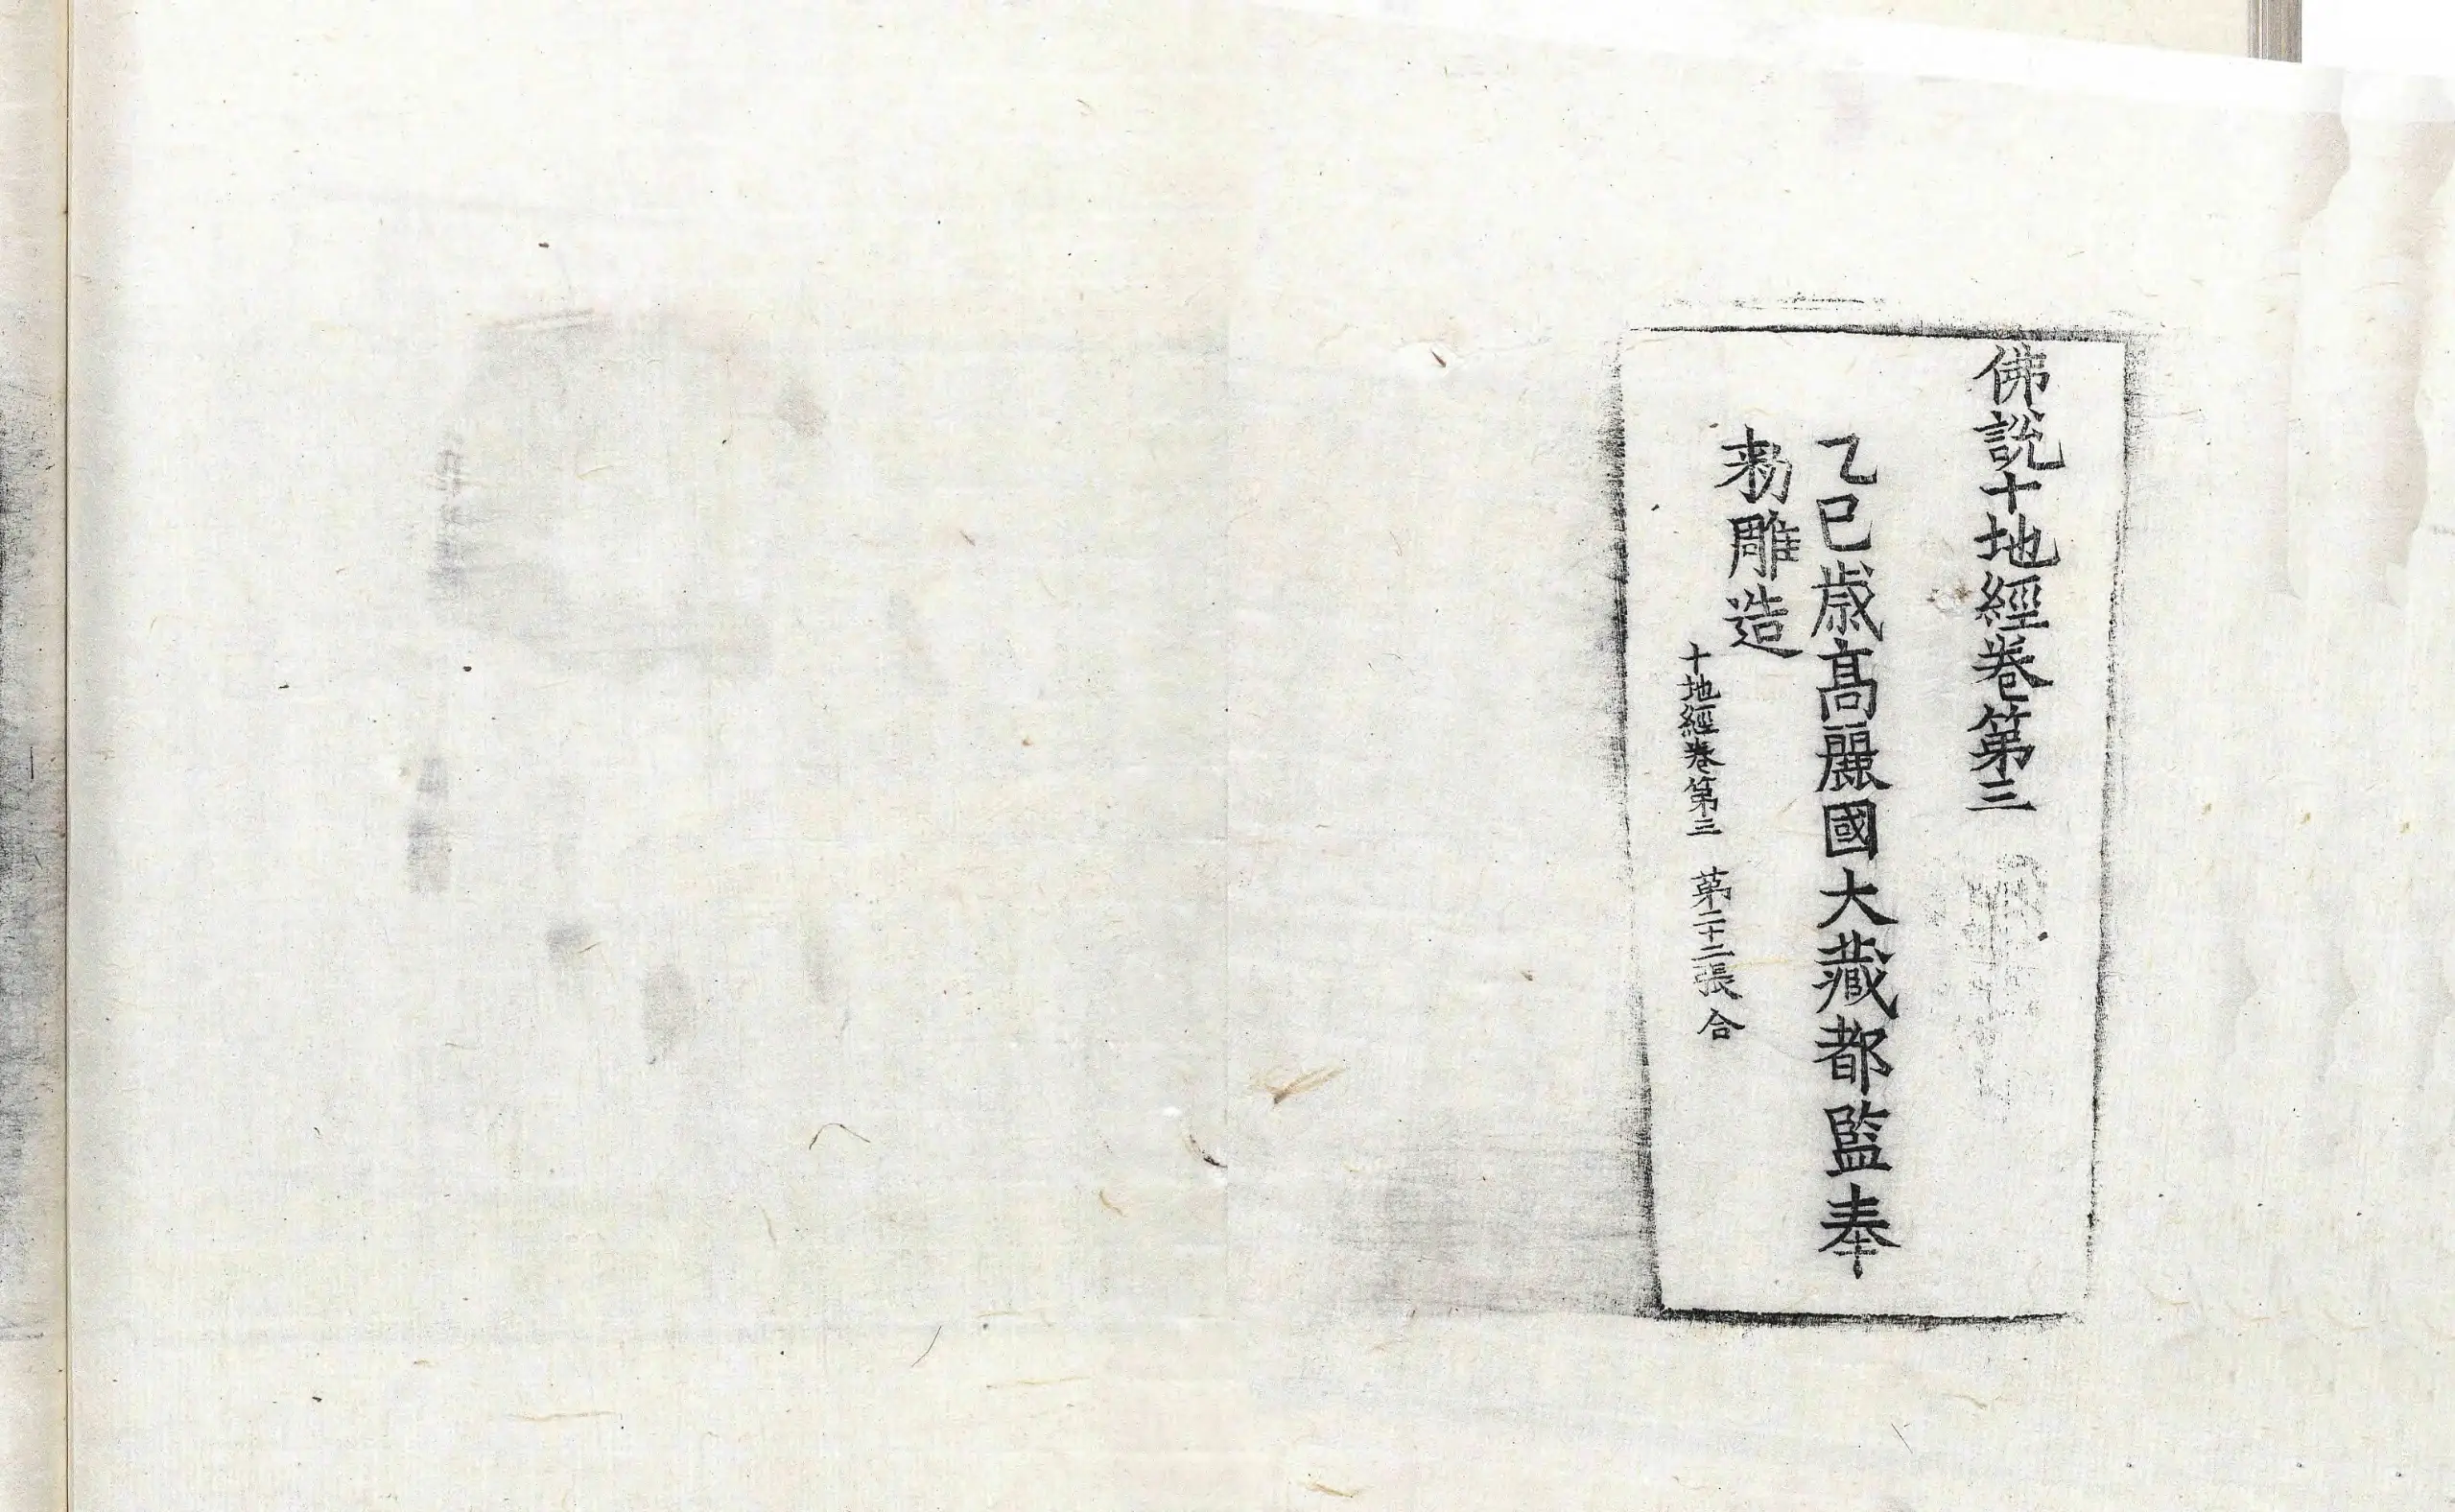 佛說十地經卷第三
乙巳歲高麗國大藏都監奉
勑雕造
十地經卷第三 第二十二張 合